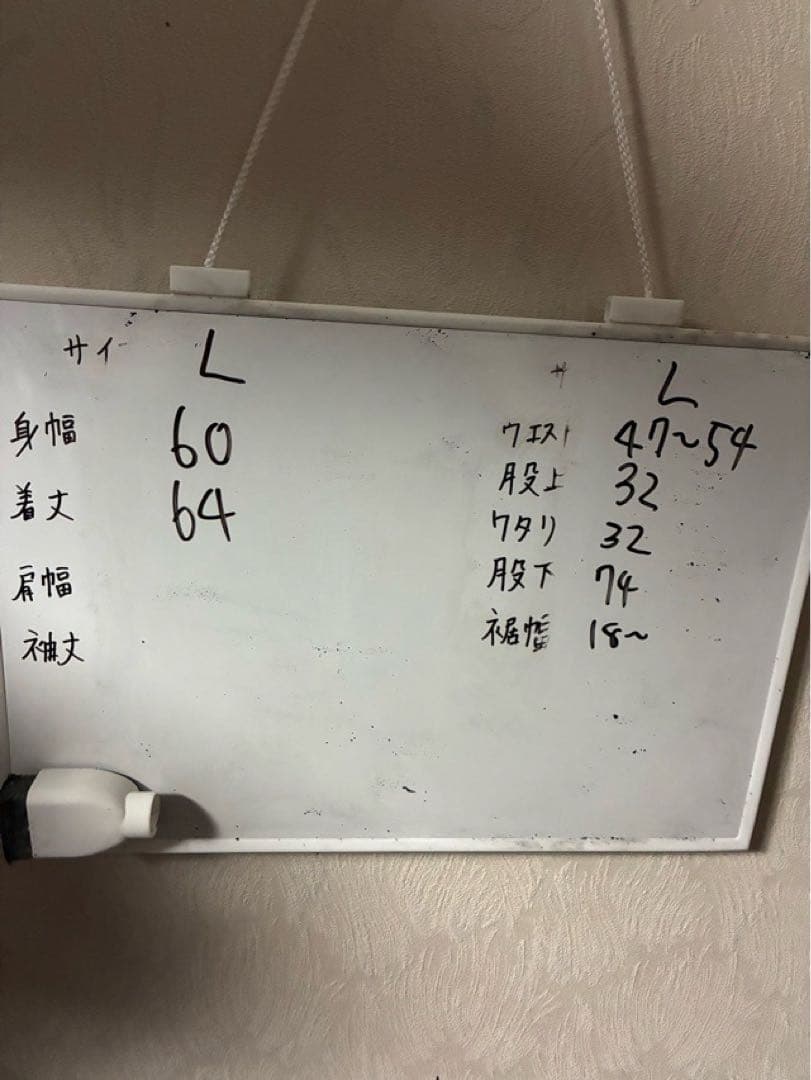 サイ L
身幅 60
着丈 64
肩幅
袖丈
サ L
ウエスト 47~54
股上 32
ワタリ 32
股下 74
裾幅 18~